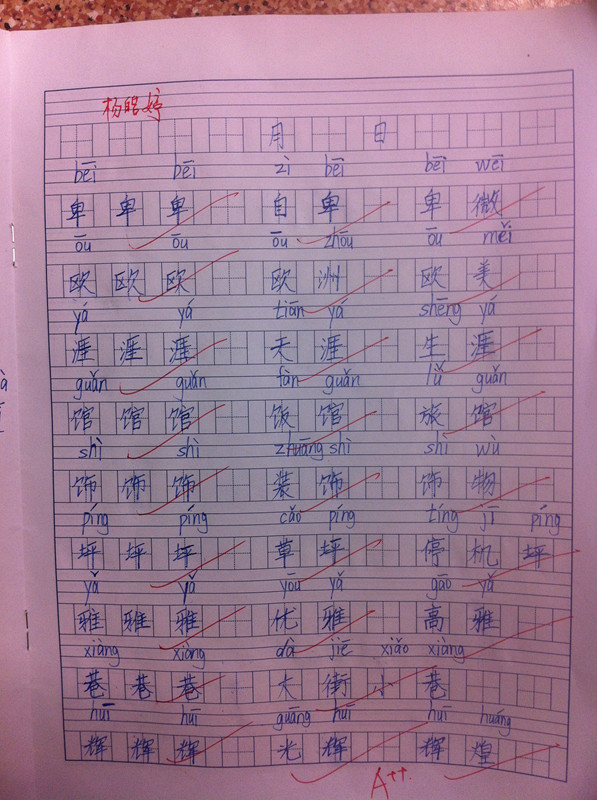 杨皓婷
月 日
bēi bēi zì bēi bēi wēi
卑 卑 卑 自 卑 卑 微
ōu ōu ōu zhōu ōu měi
欧 欧 欧 欧 洲 欧 美
yá yá tiān yá shēng yá
涯 涯 涯 天 涯 生 涯
guǎn guǎn fàn guǎn lǚ guǎn
馆 馆 馆 饭 馆 旅 馆
shì shì zhuāng shì shì wù
饰 饰 饰 装 饰 饰 物
píng píng cǎo píng tíng jī píng
坪 坪 坪 草 坪 停 机 坪
yǎ yǎ yōu yǎ gāo yǎ
雅 雅 雅 优 雅 高 雅
xiàng xiàng dà jiē xiǎo xiàng
巷 巷 巷 大 街 小 巷
huī huī guāng huī huī huáng
辉 辉 辉 光 辉 辉 煌
A++